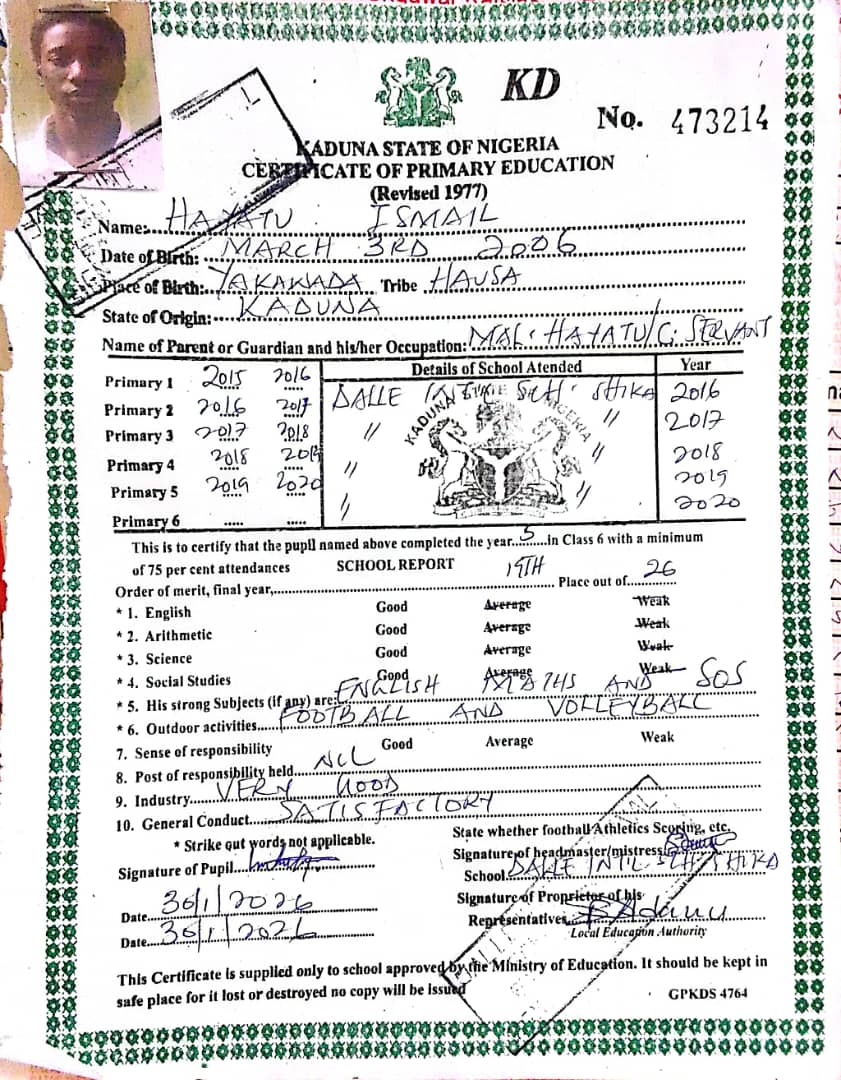 KD
No. 473214
KADUNA STATE OF NIGERIA
CERTIFICATE OF PRIMARY EDUCATION
(Revised 1977)
Name: HAYATU ISMAIL
Date of Birth: MARCH 3RD 2006
Place of Birth: YAKAWADA Tribe HAUSA
State of Origin: KADUNA
Name of Parent or Guardian and his/her Occupation: MAL. HAYATU/C. SERVANT
Details of School Atended Year
Primary 1 2015 2016 DALLE SCH. SHIKA 2016
Primary 2 2016 2017 " " 2017
Primary 3 2017 2018 " " 2018
Primary 4 2018 2019 " " 2019
Primary 5 2019 2020 " " 2020
Primary 6
KADUNA NIGERIA
This is to certify that the pupil named above completed the year 5 in Class 6 with a minimum
of 75 per cent attendances SCHOOL REPORT
Order of merit, final year, 19TH Place out of 26
* 1. English Good Average Weak
* 2. Arithmetic Good Average Weak
* 3. Science Good Average Weak
* 4. Social Studies Good Average Weak
* 5. His strong Subjects (if any) are: ENGLISH MATHS AND SOS
* 6. Outdoor activities FOOTBALL AND VOLLEYBALL
7. Sense of responsibility Good Average Weak
8. Post of responsibility held
9. Industry VERY GOOD
10. General Conduct SATISFACTORY
* Strike out words not applicable.
State whether football/Athletics Scoring, etc.
Signature of Pupil
Signature of headmaster/mistress
School DALLE INT'L SCH SHIKA
Signature of Proprietor of his
Representatives
Local Education Authority
Date 30/1/2026
Date 30/1/2026
This Certificate is supplied only to school approved by the Ministry of Education. It should be kept in
safe place for it lost or destroyed no copy will be issued
GPKDS 4764